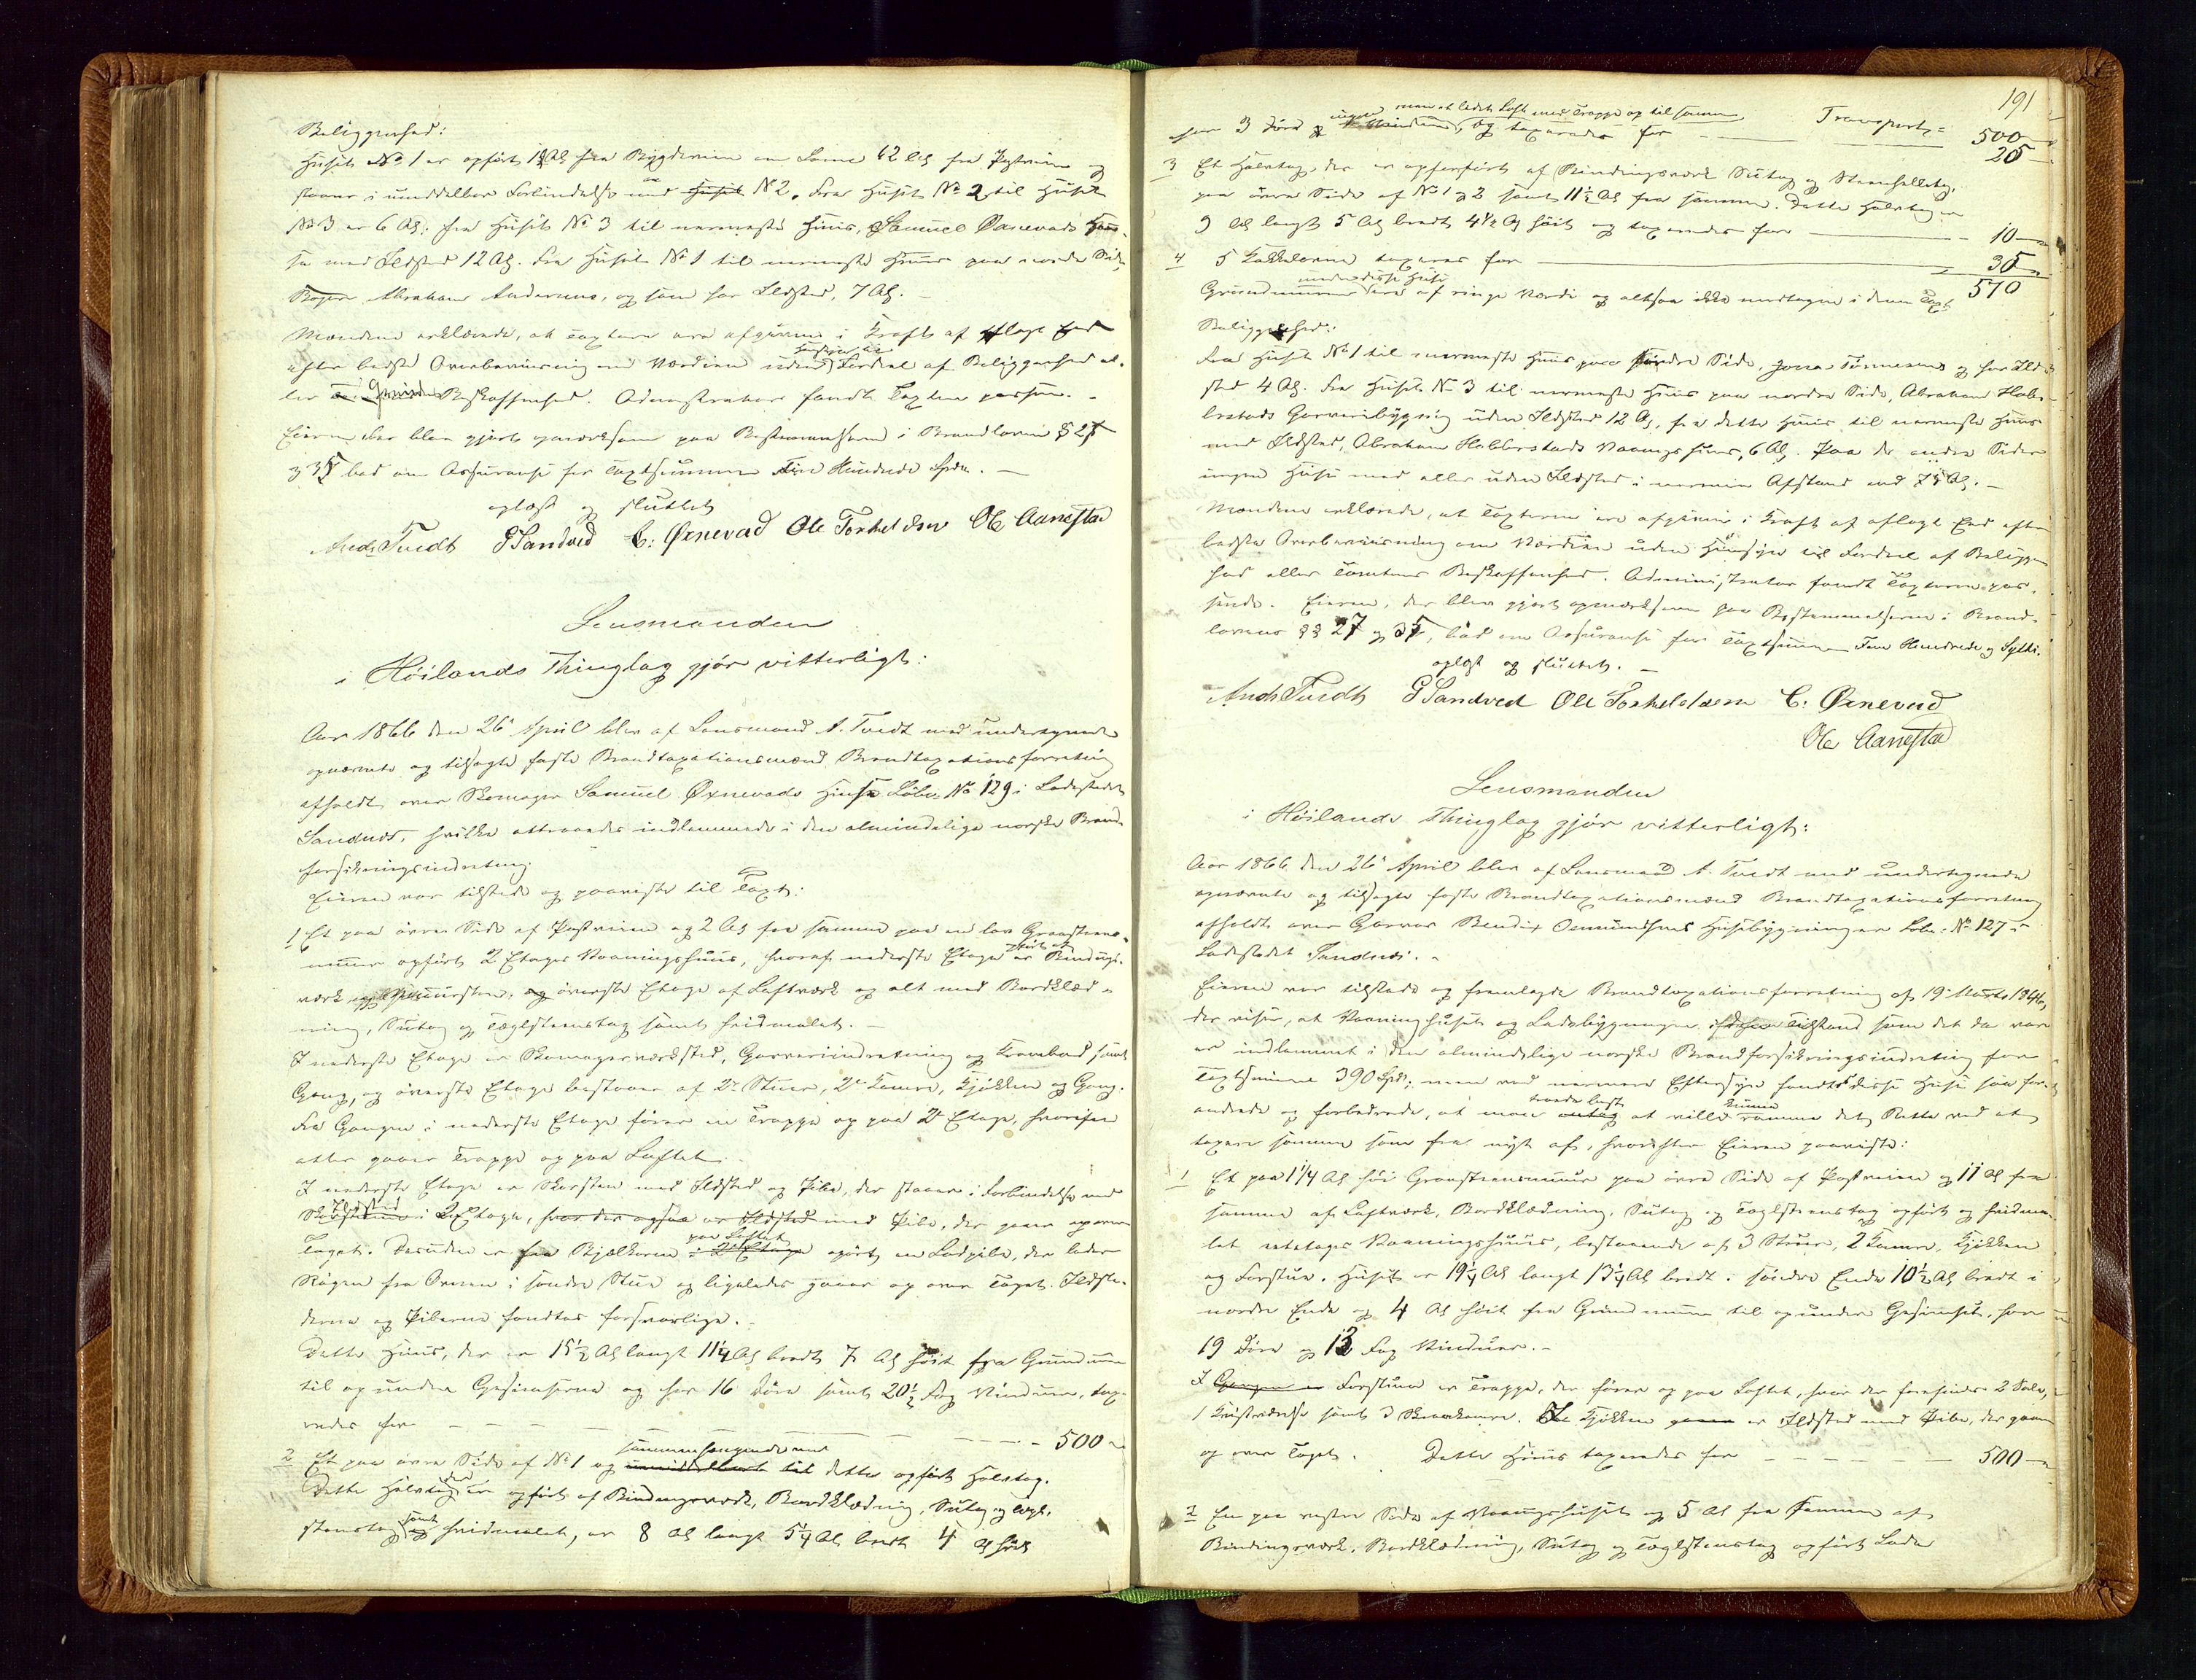 Beliggenhed:
Huset No 1 er opført 1¾ Al fra Bygdeveien en Lænne 42 Al fra Postveien og
staaer i umiddelbar Forbindelse med Huset N 2. Fra Huset No 2 til Huset
No 3 er 6 Al; fra Huset No 3 til nærmeste Huus, Samuel Øxnevads Huu-
se med Ildsted 12 Al. Fra Huset No 1 til nærmeste Huus paa nordre Side,
Bager Abraham Andersens, og som har Ildsted, 7 Al. –
Mændene erklærede, at Taxterne ere afgivne i Kraft af aflagt Eed
efter bedste Overbeviisning om Værdien uden Hensyn til Fordeel af Beliggenhed el-
ler Grunde Beskaffenhed. Administrator fandt Taxten passende. –
Eieren der blev gjort opmærksom paa Bestemmelserne i Brandloven § 27
og 35 bad om Assurance for Taxtsummen Fire Hundrede Spd. –
oplæst og sluttet
Ands Tvedt G Sandved C: Øxnevad Ole Torkeldsen Ole Aanestad
Lensmanden
i Høilands Thinglag gjør vitterligt:
Aar 1866 den 26de April blev af Lensmand A. Tvedt med undertegnede
opnævnte og tilsagte faste Brandtaxationsmænd Brandtaxationsforretning
afholdt over Skomager Samuel Øxnevads Huse Løbe No 129 i Ladestedet
Sandnes, hvilke attraaedes indlemmede i den almindelige norske Brand-
forsikringsindretning.
Eieren var tilstede og paaviste til Taxt:
1 Et paa øvre Side af Postveien og 2 Al fra samme paa en lav Graasteens-
muur opført 2 Etages Vaaningshuus, hvoraf nederste Etage er opført af Bindings-
værk og Muursteen, og øverste Etage af Laftværk og alt med Bordklæd-
ning, Sutag og Teglsteenstag samt hvidmalet. –
I nederste Etage er Skomagerværksted, Garveriindretning og Krambod samt
Gang, og øverste Etage bestaaer af 2de Stuer, 2de Kamre, Kjøkken og Gang.
Fra Gangen i nederste Etage fører en Trappe op paa 2de Etage, hvorifra
atter gaaer Trappe op paa Loftet.
I nederste Etage er Skorsteen med Ildsted og Pibe, der staaer i Forbindelse med
Ildsted Skorstenen i 2 Etage, hvor der ogsaa er Ildsted med Pibe, der gaaer op over
Taget. Desuden er fra Bjelkerne paa Loftet i 2de Etage opført en Ladpibe, der leder
Røgen fra Ovnen i søndre Stue og ligeledes gaaer op over Taget. Ildste-
derne og Piberne fandtes forsvarlige. –
Dette Huus, der er 15½ Al langt 11¼ Al bredt 7 Al høit fra Grundmuur
til op under Gesimserne og har 16 Døre samt 20½ Fag Vinduer, tax-
eredes for – – – – – 500 "
2 Et paa øvre Side af No 1 og sammenhængende med umiddelbart til dette opført Halvtag.
Dette Halvtag der er opført af Bindingsværk, Bordklædning, Sutag og Tegl-
steenstag samt og hvidmalet, er 8 Al langt 5¼ Al bredt 4 Al høit
191
Transport = 500 –
har 3 Døre og ingen Vinduer, men et lidet Loft med Trappe op til samme og taxeredes for – 25 –
3 Et Halvtag, der er opført af Bindingsværk Sutag og Steenhelletag,
paa øvre Side af No 1 og 2 samt 11½ Al fra samme. Dette Halvtag er
9 Al langt 5 Al bredt 4½ Al høit og taxeredes for – 10 –
4 5 Kakkelovne taxeres for – 35 –
Grundmurene under disse Huse ere af ringe Værdi og altsaa ikke medtagne i denne Taxt. 570
Beliggenhed:
Fra Huset No 1 til nærmeste Huus paa søndre Side, Jonas Tønnesens og har Ild-
sted 4 Al. Fra Huset No 3 til nærmeste Huus paa nordre Side, Abraham Hab-
berstads Garveribygning uden Ildsted 12 Al, fra dette Huus til nærmeste Huus
med Ildsted, Abraham Habberstads Vaaningshuus, 6 Al. Paa de andre Sider
ingen Huse med eller uden Ildsted i nærmere Afstand end 75 Al. –
Mændene erklærede, at Taxterne ere afgivne i Kraft af aflagt Eed efter
bedste Overbeviisning om Værdien uden Hensyn til Fordeel af Beliggen-
hed eller Tomtens Beskaffenhed. Administrator fandt Taxterne pas-
sende. Eieren, der blev gjort opmærksom paa Bestemmelserne i Brand-
lovens §§ 27 og 35, bad om Assurance for Taxtsummen Fem Hundrede og Sytti.
oplæst og sluttet. –
Ands Tvedt G Sandved Ole Torkeldsen C. Øxnevad
Ole Aanestad
Lensmanden
i Høilands Thinglag gjør vitterligt:
Aar 1866 den 26de April blev af Lensmand A. Tvedt med undertegnede
opnævnte og tilsagte faste Brandtaxationsmænd Brandtaxationsforretning
afholdt over Garver Bendix Osmundsens Husebygninger Løbe: No 127 i
Ladestedet Sandnes. –
Eieren var tilstede og fremlagde Brandtaxationsforretning af 19de Marts 1846,
der viser, at Vaaningshuset og Ladebygningen i den Tilstand som det da var
er indlemmet i den almindelige norske Brandforsikringsindretning for
Taxtsumme 390 Spd; men ved nærmere Eftersyn fandtes disse Huse saa for-
andrede og forbedrede, at man troede bedst antog at ville kunne ramme det Rette ved at
taxere samme som fra nyt af, hvorefter Eieren paaviste:
1 Et paa 1¼ Al høi Graasteensmuur paa øvre Side af Postveien og 11 Al fra
samme af Laftværk, Bordklædning, Sutag og Teglsteenstag opført og hvidma-
let etetages Vaaningshuus, bestaaende af 3 Stuer, 2 Kamre, Kjøkken
og Forstue. Huset er 19¼ Al langt 13¼ Al bredt i søndre Ende 10½ Al bredt i
nordre Ende og 4 Al høit fra Grundmuur til op under Gesimset, har
19 Døre og 12 Fag Vinduer. –
I Gangen er Forstuen er Trappe, der fører op paa Loftet, hvor der forefindes 2 Sale,
1 samt 3 Kamre. I Kjøkken er Ildsted med Pibe, der gaaer
op over Taget. Dette Huus taxeredes for – – – – – 500 –
2 En paa vestre Side af Vaaningshuset og 5 Al fra samme af
Bindingsværk, Bordklædning, Sutag og Teglsteenstag opført Lade